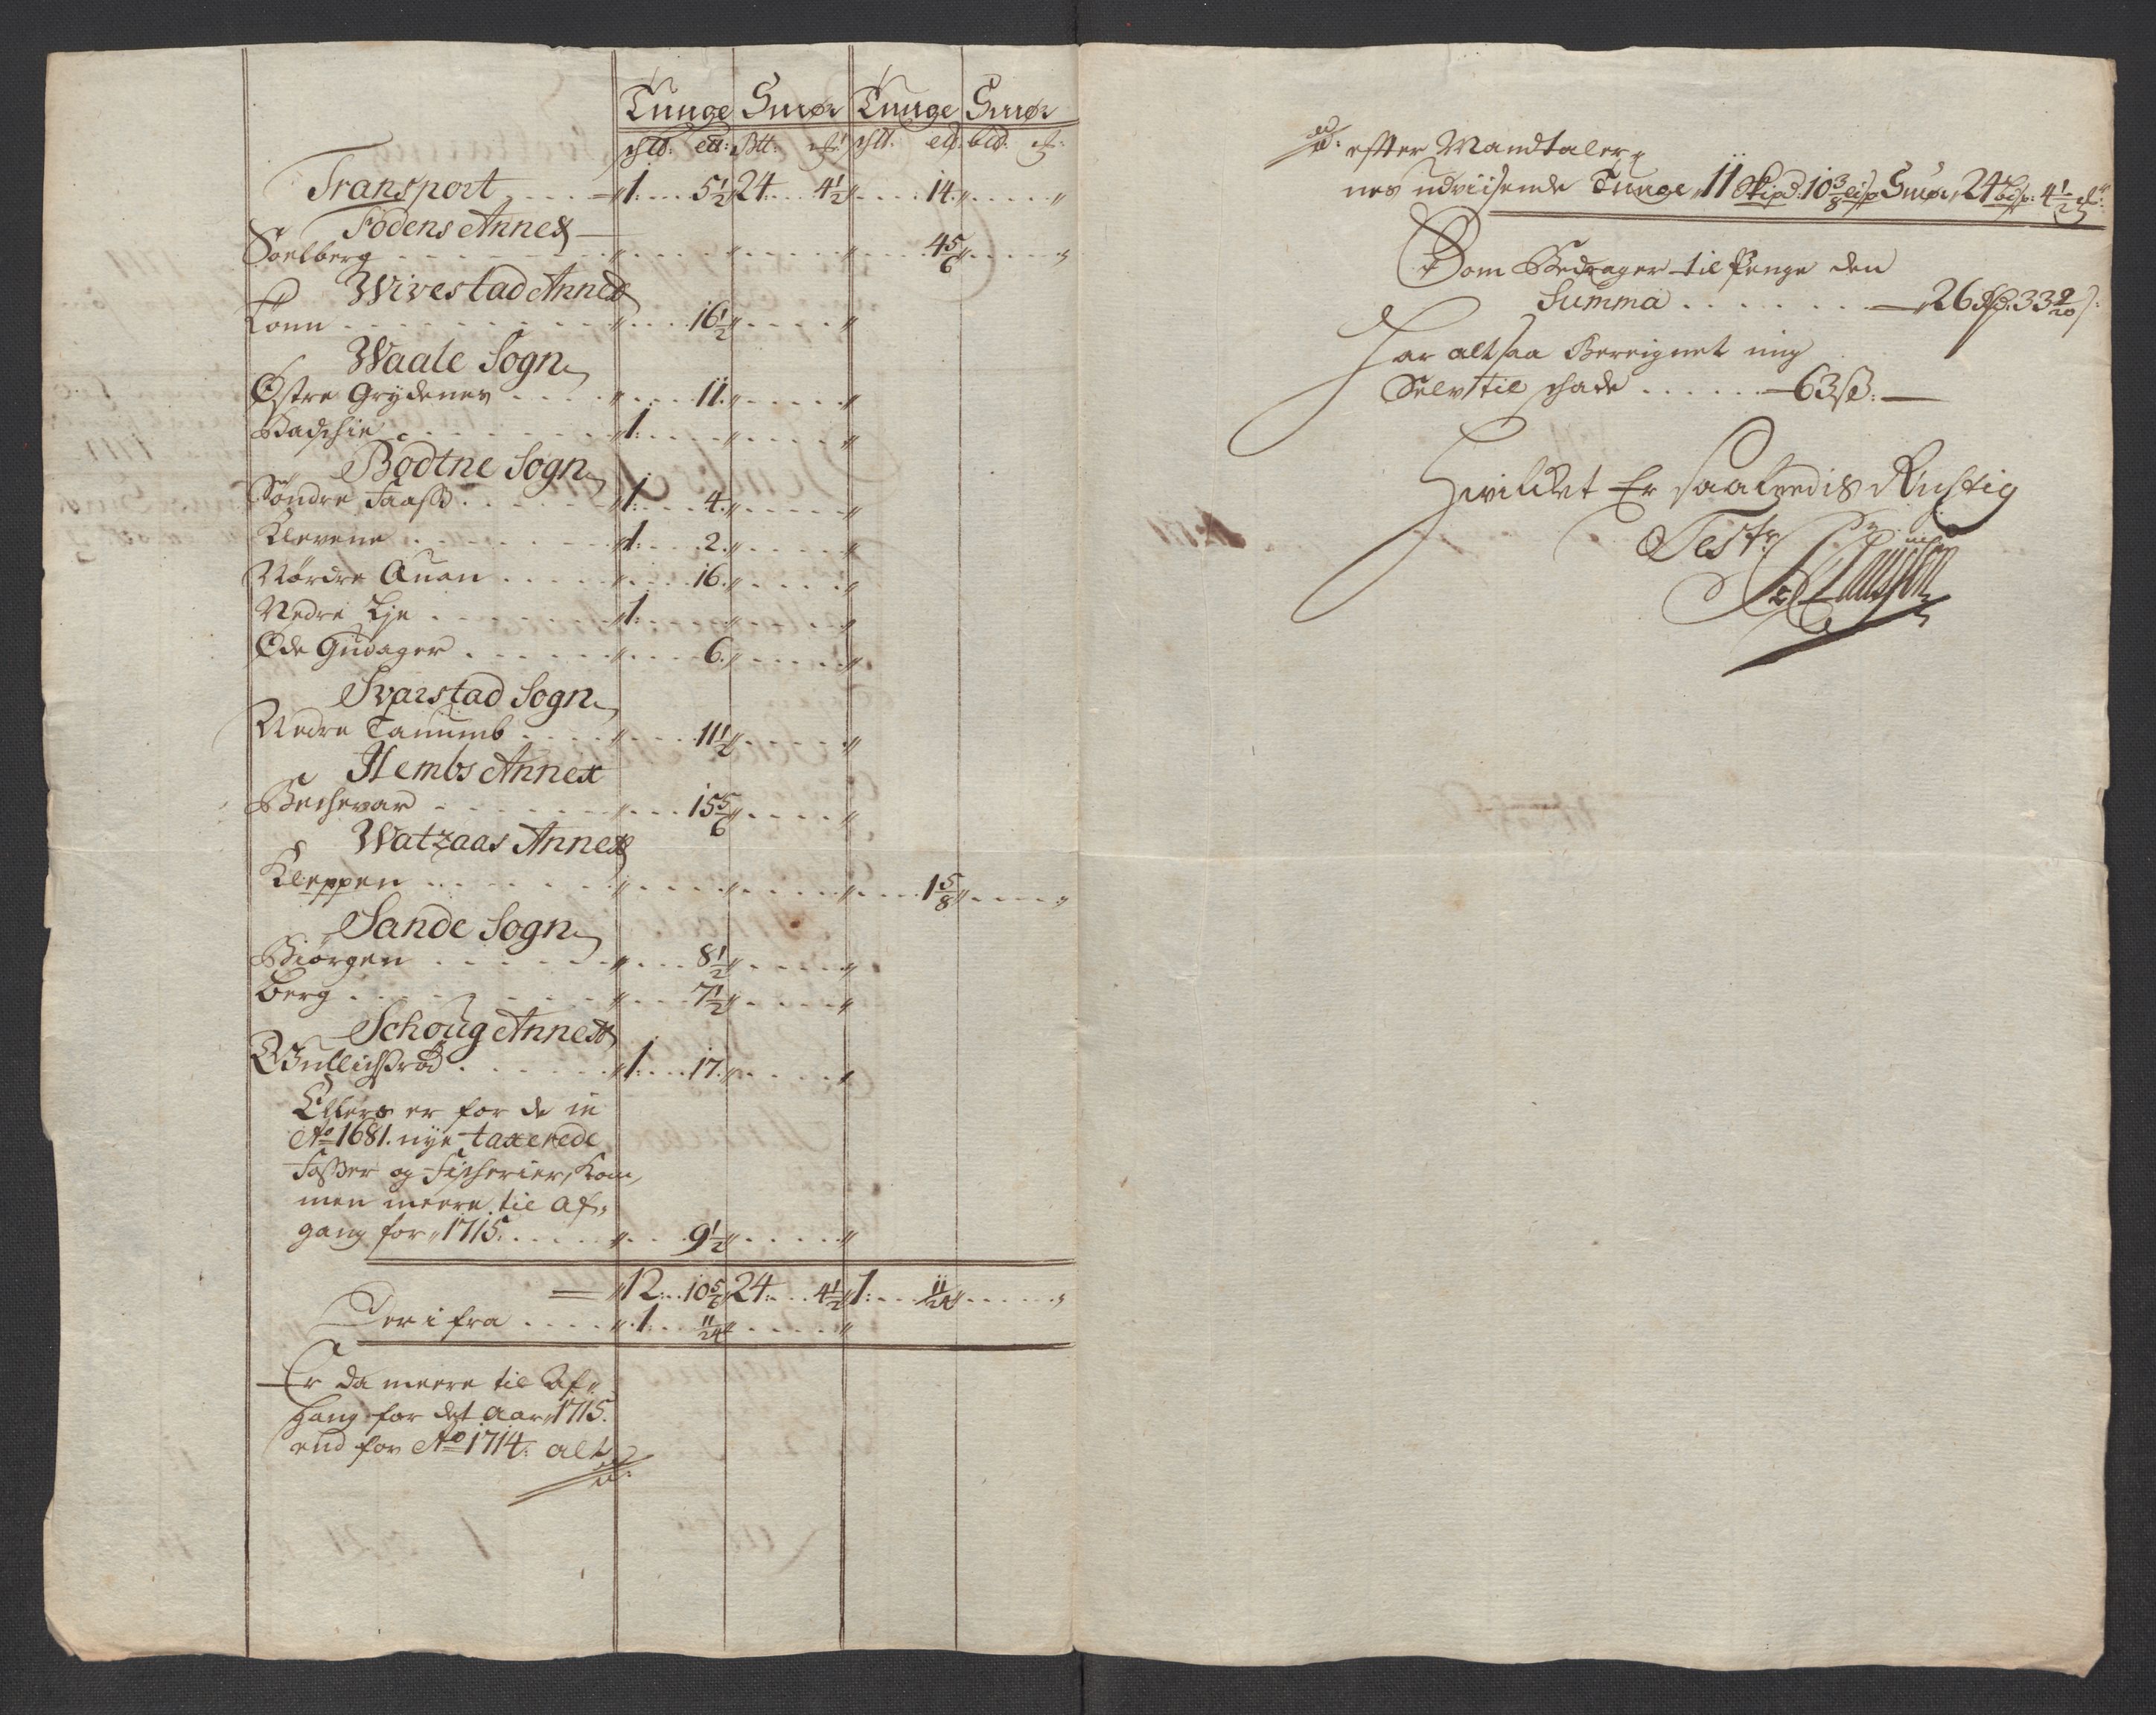 Tunge Smør Tunge Smør
Transport 1: 5½ 24 4½ 14
Fodens Annex
Soelberg 4 5/6
Wivestad Annex
Lönn 16½
Waale Sogn
Østre Grydenes 11
Bachsie 1:
Bodtne Sogn
Søndre Faass 1: 4
Klevene 1: 2
Nørdre Quan 16
Nedre Lje 1:
Øde Gudager 6
Svarstad Sogn
Nedre Tanumb 11½
Hembs Annex
Bechevar 15 5/6
Watzaas Annex
Kleppen 1 5/8
Sande Sogn
Biörgen 8½
Berg 7½
Schoug Annex
Gullichsrød 1: 17
Ellers er for de in
Ao 1681. nye taxerede
Fosser og Fischerier, Kom,,
men meere til af,,
gang for 1715 9½
12: 10 5/6 24: 4½ 1: 11/24
Der i fra 1: 11/24
Er da meere til Af,,
gang for det Aar 1715.
end for Ao 1714: alt
efter Mandtaler,,
nes udviisende Tunge 11 Skipd: 10 3/8 Smør 24 4½
Som Bedrager til Penge den
Summa 26 33 9/20
Har altsaa Bereignet mig
Selv til schade 63 ß:
Hvilchet Er saaledis Rigtig
Test: